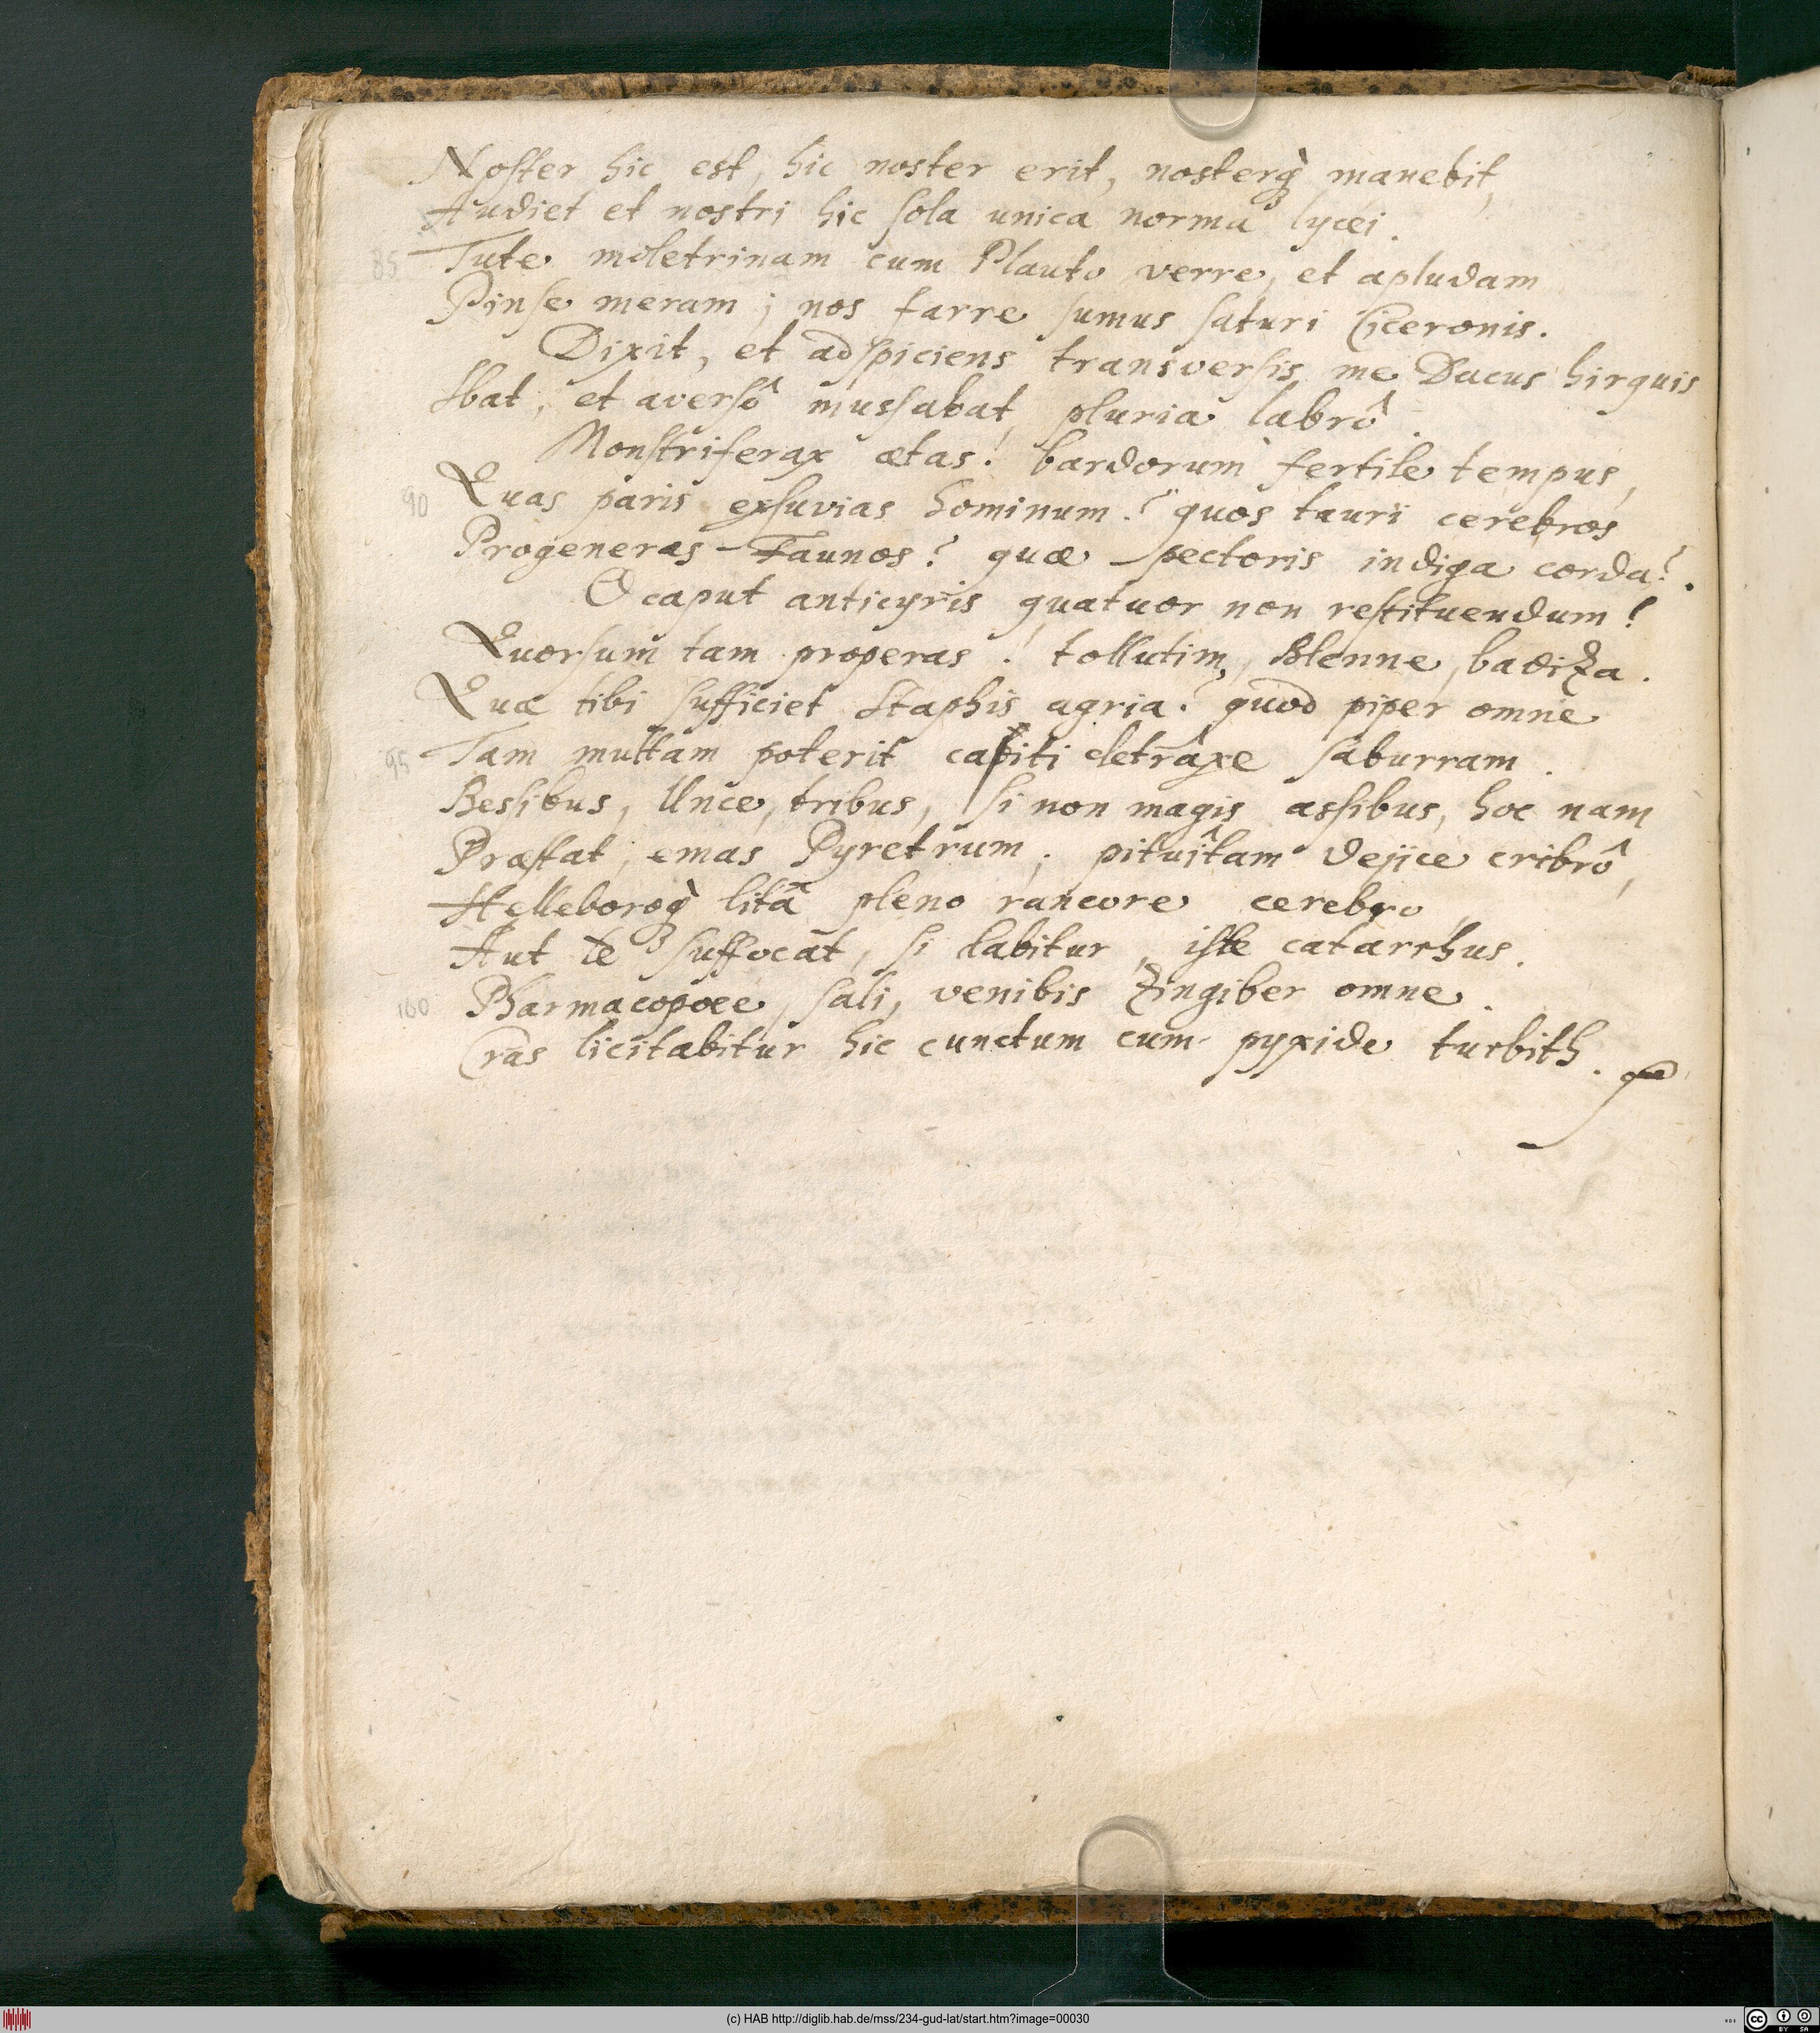 Noster hic est, hic noster erit, nosterq̀ manebit,
Audiet et nostri hic sola unica norma lycei.
85 Tute moletrinam cum Plauto verre, et apludam
Pinse meram; nos farre sumus saturi Ciceronis.
Dixit, et adspiciens transversis me Dacus hirquis
Ibat, et aversô mussabat pluria labrô.
Monstriferax ætas! bardorum fertile tempus,
90 Quas paris exsuvias hominum? quos tauri cerebros
Progeneras Faunos? quæ pectoris indiga corda?.
O caput anticyris quatuor non restituendum!
Quorsum tam properas! tollutim, Blenne, badiza.
Quæ tibi sufficiet Staphis agria? quod piper omne
95 Tam multam poterit capiti detraxe saburram.
Bessibus, Unce, tribus, si non magis assibus, hoc nam
Præstat, emas Pyretrum; pituîtam dejice cribrô,
Helleboroq̀ litâ pleno rancore cerebro,
Aut te suffocat, si labitur, iste catarrhus.
100 Pharmacopoee, sali, venibis Zingiber omne.
Cras licitabitur hic cunctum cum pyxide turbith.
(c) HAB http://diglib.hab.de/mss/234-gud-lat/start.htm?image=00030
cc BY SA